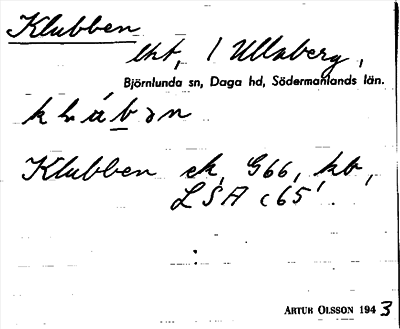 Klubben
lht, / Ullaberg,
Björnlunda sn, Daga hd, Södermanlands län.
Klubben ek, G66, kb,
LSA c65'.
ARTUR OLSSON 1943